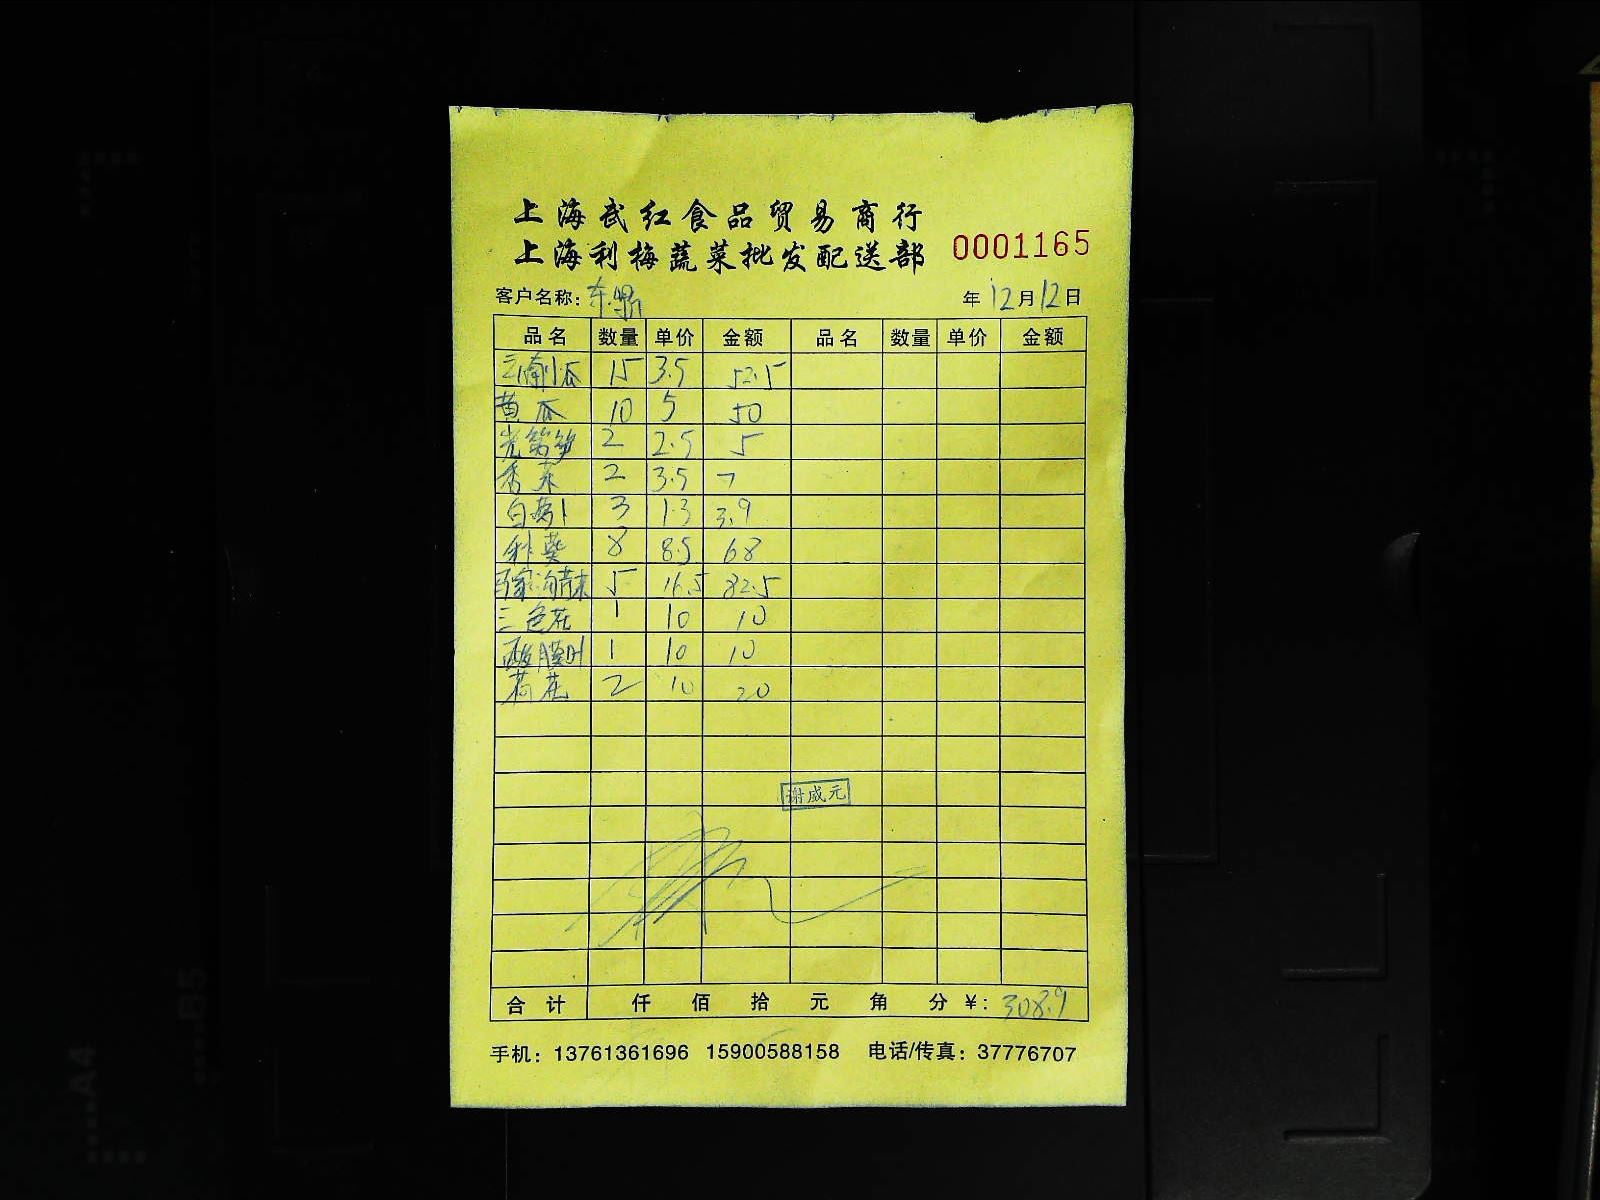 上海武红食品贸易商行
上海利梅蔬菜批发配送部 0001165
客户名称: 东 年12月12日
品名 数量 单价 金额 品名 数量 单价 金额
云南小瓜 15 3.5 52.5
黄瓜 10 5 50
光莴笋 2 2.5 5
香菜 2 3.5 7
白萝卜 3 1.3 3.9
秋葵 8 8.5 68
5 16.5 82.5
三色花 1 10 10
酸膜叶 1 10 10
荷花 2 10 20
谢盛元
合计 仟 佰 拾 元 角 分 ¥: 308.9
手机: 13761361696 15900588158 电话/传真: 37776707